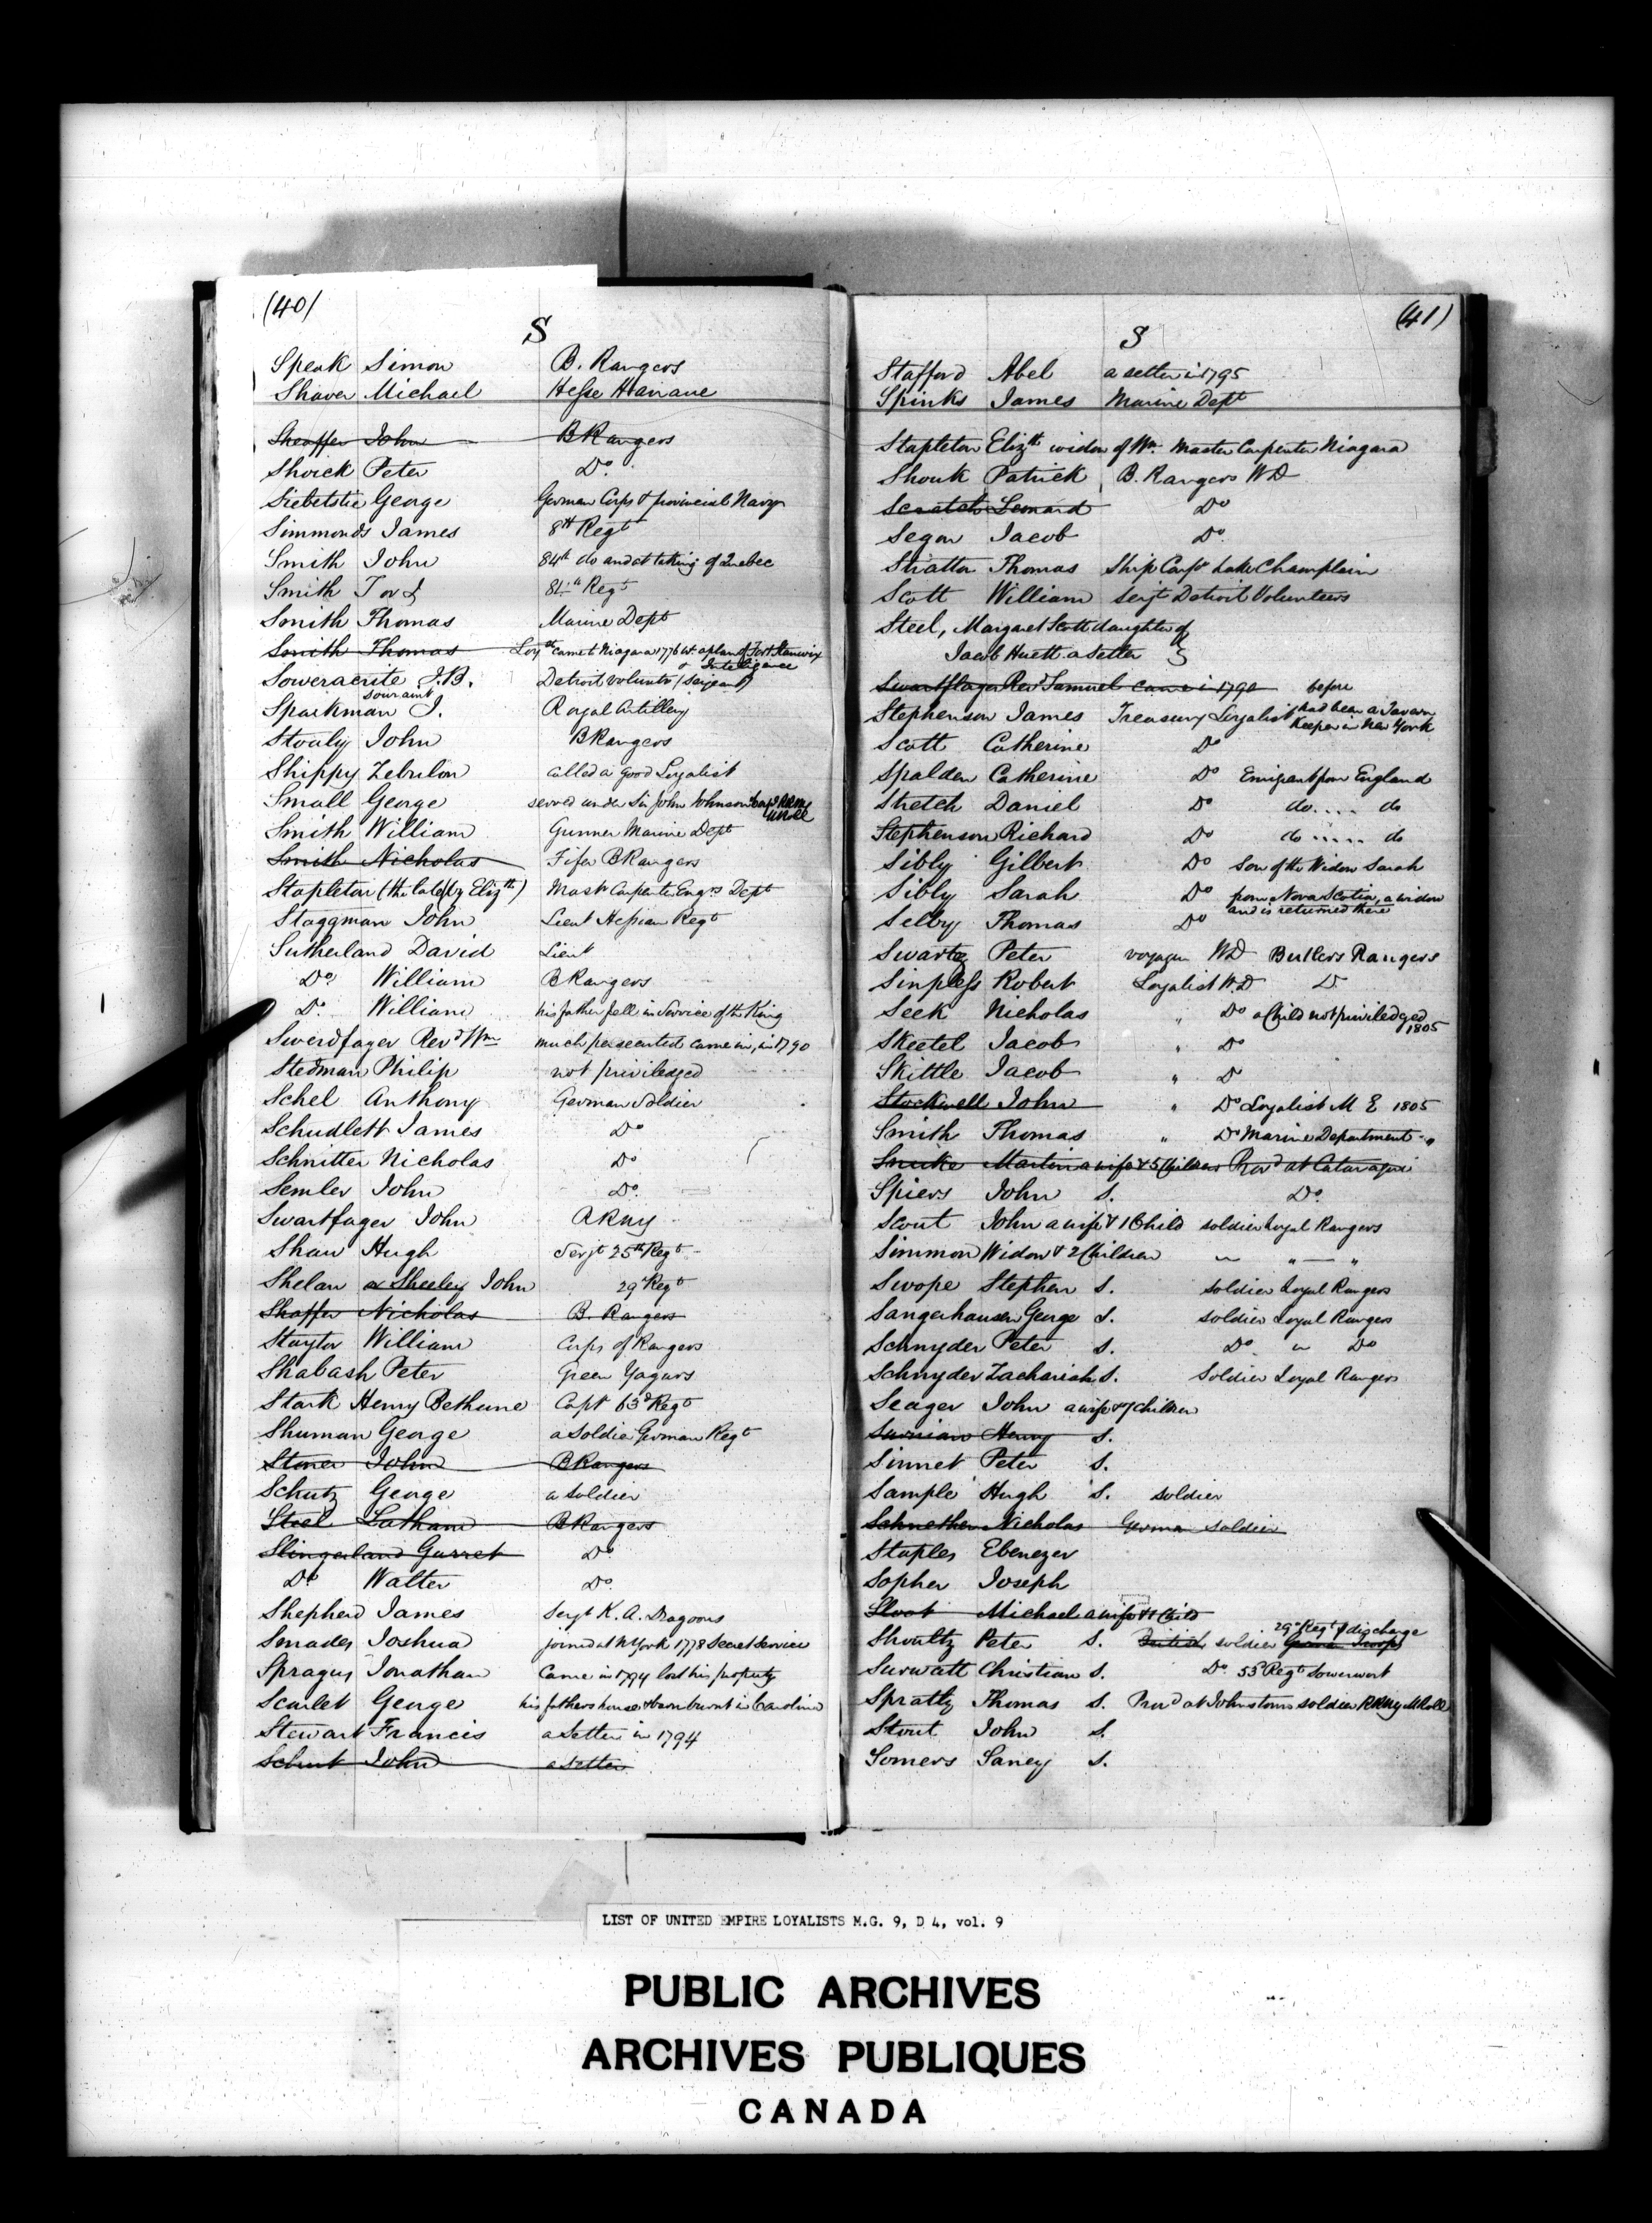 (40)
S
Speak Simon B. Rangers
Shaver Michael Hesse Hanaue
Sheaffer John BRangers
Shoick Peter Do.
Siebetstie George German Corps & provincial Navy
Simmonds James 8th Regt
Smith John 84th do and at taking of Quebec
Smith T or I 84th Regt
Smith Thomas Marine Dept
Smith Thomas Loyst came to Niagara 1776 wt a plan of Fort Stanwix
& Intelligence
Soweracrite J.B. Detroit Volunts (Serjeant)
souraint
Sparkman J. Royal Artillery
Stoaly John BRangers
Shippy Zebulon called a good Loyalist
Small George served under Sir John Johnson
Smith William Gunner Marine Dept
Smith Nicholas Fifer BRangers
Stapleton (the late) (by Elizth) Mastr Carpenter Engrs Dept
Staggman John Lieut Hessian Regt
Sutherland David Lieut
Do. William BRangers
Do. William his father fell in Service of the King
Swerdfager Revd Wm much persecuted came in, in 1790
Stedman Philip not priviledged
Schel Anthony German Soldier
Schudlett James Do
Schnitter Nicholas Do
Semler John Do.
Swartfager John RRNY
Shaw Hugh Serjt 25th Regt
Shelan or Sheeley John 29 Regt
Shaffer Nicholas B. Rangers
Staytor William Corps of Rangers
Shabash Peter Green Yagars
Stark Henry Bethune Capt 63d Regt
Shuman George a Soldier German Regt
Stoner John BRangers
Schutz George a soldier
Steel Latham BRangers
Slingerland Garret Do
Do Walter Do.
Shepherd James Serjt K. A. Dragoons
Smades Joshua joined at N York 1778 Secret Service
Spragus Jonathan Came in 1794 lost his property
Scarlet George his fathers house & barn burnt in Carolina
Stewart Francis a Setter in 1794
Schunt John a Setter
(41)
S
Stafford Abel a setter in 1795
Spinks James Marine Dept
Stapleton Elizth widow of Wm. Master Carpenter Niagara
Shouk Patrick B. Rangers WD
Scratch Leonard Do
Segar Jacob Do.
Stratton Thomas Ship Carpr Lake Champlain
Scott William Serjt Detroit Volunteers
Steel, Margaret Scott daughter of
Jacob Huett a Setter }
Swartfager Revd Samuel came in 1790 before
Stephenson James Treasury Loyalist had been a Tavern
Keeper in New York
Scott Catherine Do
Spalden Catherine Do Emigrant from England
Stretch Daniel Do do.... do
Stephenson Richard Do do..... do
Sibly Gilbert Do Son of the Widow Sarah
Sibly Sarah Do from Nova Scotia, a widow
and is returned there
Selby Thomas Do
Swartz Peter voyager WD Butlers Rangers
Sinpless Robert Loyalist WD D
Seek Nicholas " Do a Child not priviledged
1805
Skeetel Jacob " Do
Skittle Jacob " D
Stockwell John " Do Loyalist M E 1805
Smith Thomas " Do Marine Department "
Snuke Martin a wife & 5 Children Provd at Cataraqui
Spiers John S. Do.
Scout John a wife & 1 Child soldier Loyal Rangers
Simmon Widow & 2 Children " " — "
Swope Stephen S. soldier Loyal Rangers
Sangerhausen George S. soldier Loyal Rangers
Schnyder Peter S. Do " Do
Schnyder Zachariah S. Soldier Loyal Rangers
Seager John a wife & 7 children
Henry S.
Sinnet Peter S.
Sample Hugh S. soldier
Schnether Nicholas German soldier
Staples Ebenezer
Sopher Joseph
Sloot Michael a wife & 1 Child
29th Regt p discharge
Shoultz Peter S. British soldier German Troops
Surwatt Christian S. Do. 53d Regt Sowerwort
Spratty Thomas S. Provd at Johnstown soldier RRNY M Roll
Stout John S.
Somers Saney S.
LIST OF UNITED EMPIRE LOYALISTS M.G. 9, D 4, vol. 9
PUBLIC ARCHIVES
ARCHIVES PUBLIQUES
CANADA